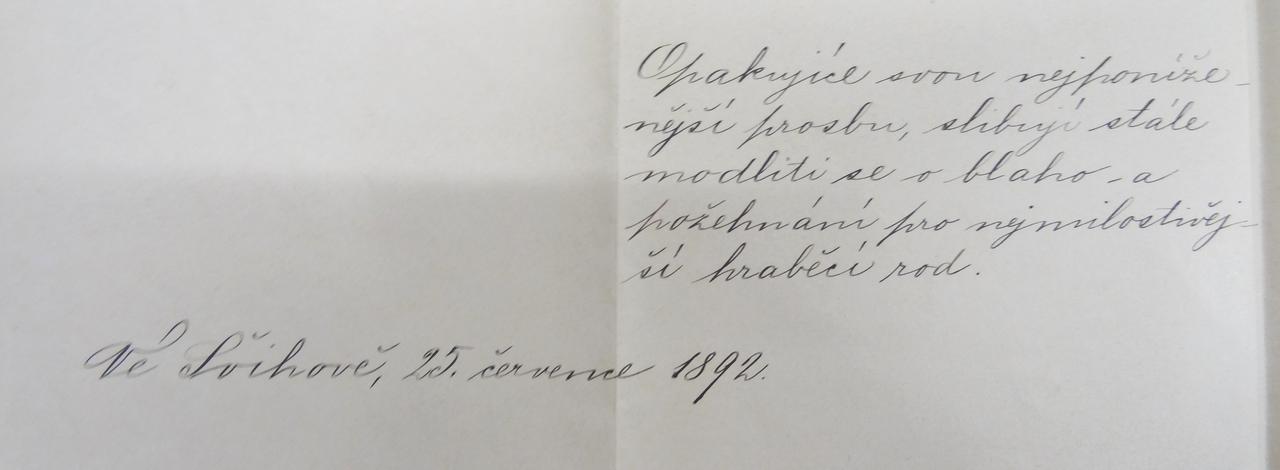 Opakujíce svou nejponíže-
nější prosbu, slibují stále
modliti se o blaho a
požehnání pro nejmilostivěj-
ší hraběcí rod.
Ve Švihově, 25. července 1892.